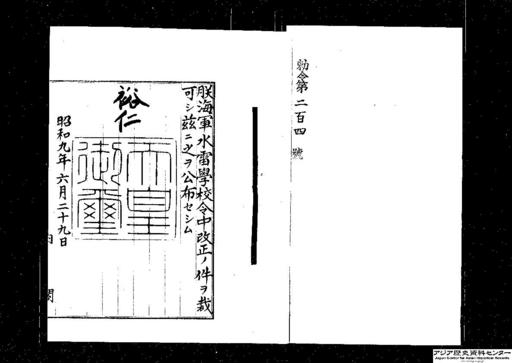 勅令第二百四號
朕海軍水雷學校令中改正ノ件ヲ裁
可シ茲ニ之ヲ公布セシム
裕仁
天皇御璽
昭和九年六月二十九日
内閣
アジア歴史資料センター
Japan Center for Asian Historical Records